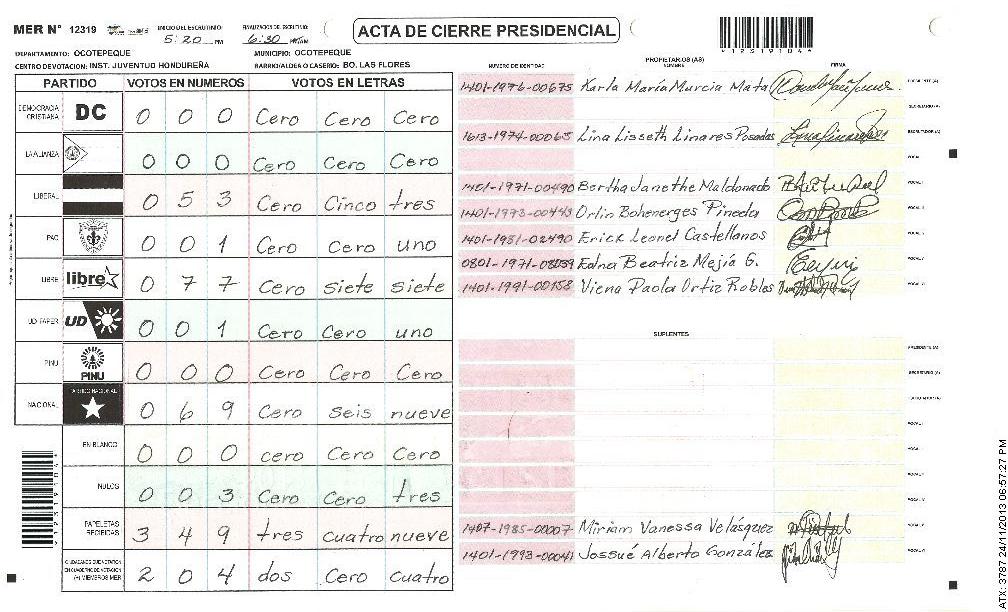 MER N° 12319
INICIO DEL ESCRUTINIO: 5:20 PM
FINALIZACION DEL ESCRUTINIO: 6:30
ACTA DE CIERRE PRESIDENCIAL
DEPARTAMENTO: OCOTEPEQUE
MUNICIPIO: OCOTEPEQUE
CENTRO DE VOTACION: INST. JUVENTUD HONDUREÑA
BARRIO/ALDEA O CASERIO: BO. LAS FLORES
PARTIDO VOTOS EN NUMEROS VOTOS EN LETRAS
DEMOCRACIA CRISTIANA DC 0 0 0 Cero Cero Cero
LA ALIANZA 0 0 0 Cero Cero Cero
LIBERAL 0 5 3 Cero Cinco tres
PAC 0 0 1 Cero Cero uno
LIBRE libre 0 7 7 Cero siete siete
UD FAPER UD 0 0 1 Cero Cero uno
PINU PINU 0 0 0 Cero Cero Cero
NACIONAL PARTIDO NACIONAL 0 6 9 Cero seis nueve
EN BLANCO 0 0 0 cero Cero Cero
NULOS 0 0 3 Cero Cero tres
PAPELETAS RECIBIDAS 3 4 9 tres cuatro nueve
(+) MIEMBROS MER 2 0 4 dos Cero cuatro
PROPIETARIOS (AS)
NUMERO DE IDENTIDAD NOMBRE FIRMA
1401-1976-00675 Karla María Murcia Mata PRESIDENTE (A)
SECRETARIO (A)
1613-1974-00065 Lina Lisseth Linares Posadas ESCRUTADOR (A)
VOCAL I
1401-1971-00490 Bertha Janethe Maldonado
1401-1973-00443 Orlin Bohenerges Pineda
1401-1981-02490 Erick Leonel Castellanos
0801-1971-08039 Edna Beatriz Mejía G.
1401-1991-00158 Viena Paola Ortiz Robles
SUPLENTES
PRESIDENTE (A)
SECRETARIO (A)
ESCRUTADOR (A)
1407-1985-00007 Miriam Vanessa Velásquez
1401-1993-00041 Jossué Alberto González
ATX: 3787 24/11/2013 06:57:27 PM